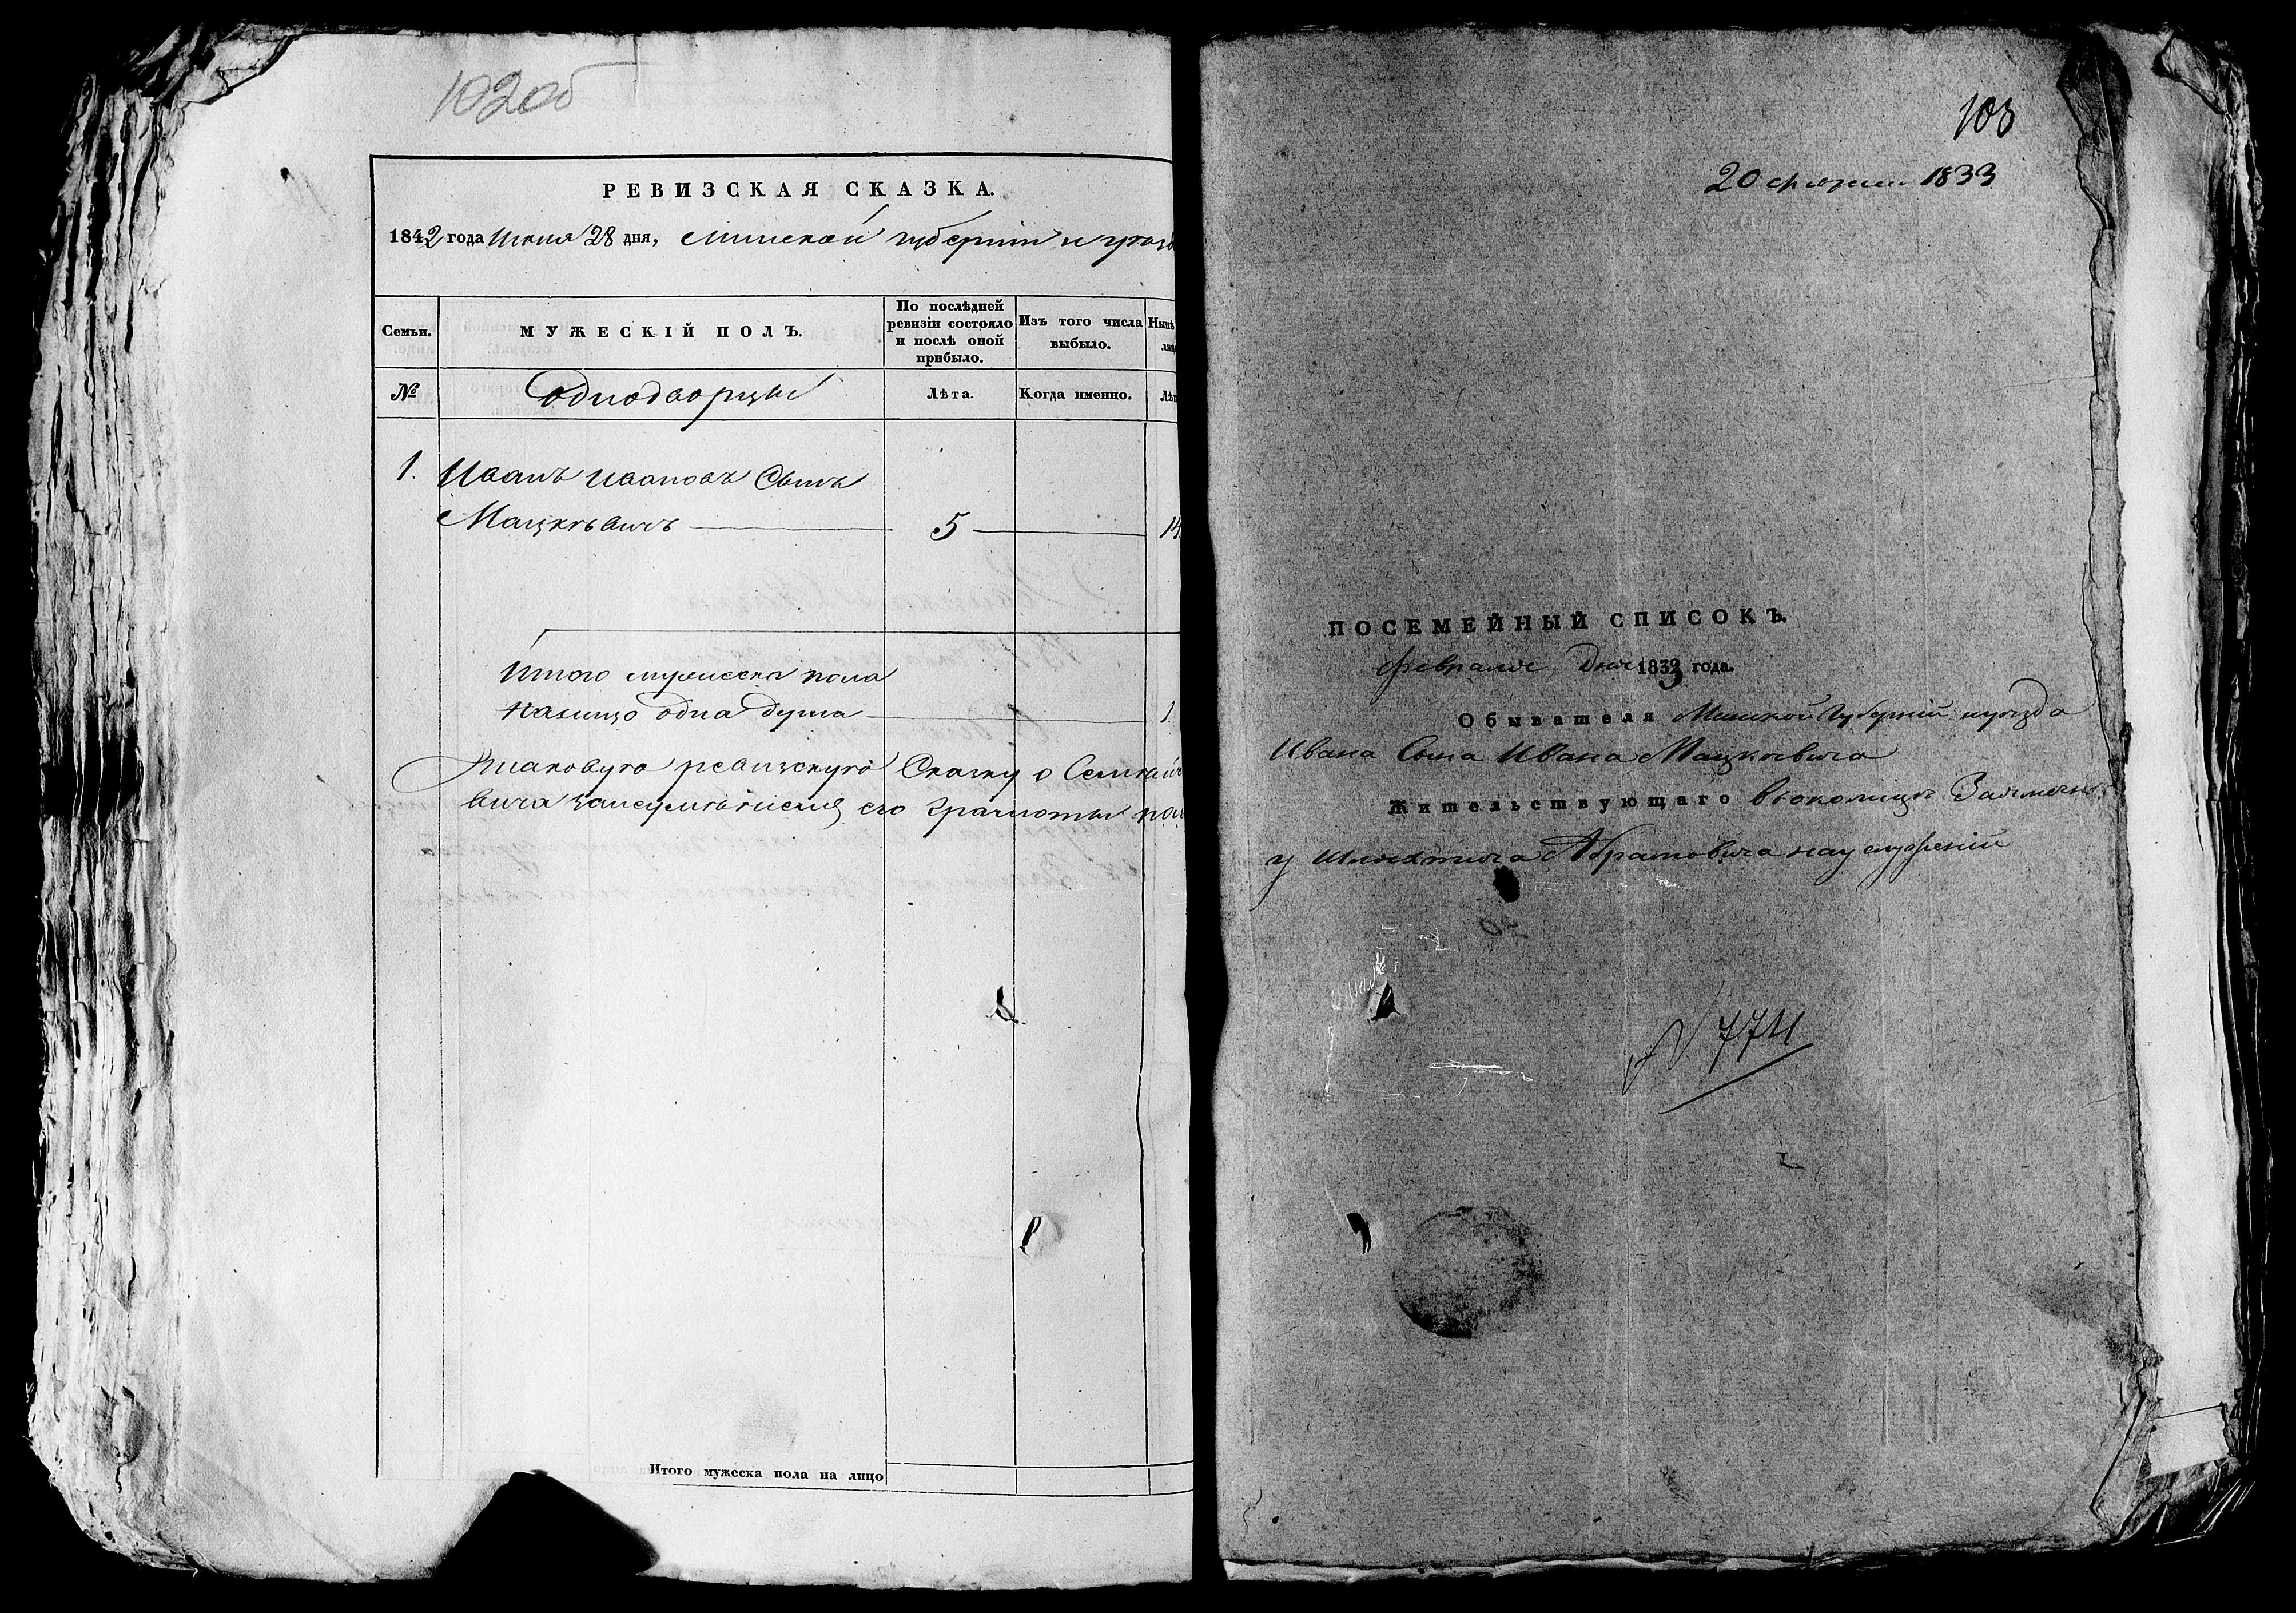 102об
РЕВИЗСКАЯ СКАЗКА.
1842 года Июня 28 дня, Минской губернiи и уезд
Семьи.
МУЖЕСКІЙ ПОЛЪ.
По послѣдней ревизіи состояло и послѣ оной прибыло.
Изъ того числа выбыло.
Нынѣ
№
Однодворцы
Лѣта.
Когда именно.
Лѣт
1. Иванъ Ивановъ Сынъ
Мацкѣвичъ 5 14
Итого мужеска пола
налицо одна душа 1.
ревизскую Сказку о Семѣй
вича его грамоты
Итого мужеска пола на лицо
103
20 1833
ПОСЕМЕЙНЫЙ СПИСОКЪ.
Февраля дня 1833 года.
Обывателя Минской Губернiи и уезда
Ивана Сына Ивана Мацкѣвича
Жительствующаго
у Шляхтича Абрамовича на услужении
N 774